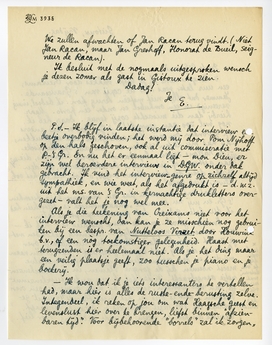 3936
We zullen afwachten of Jan Racan terug vindt! (Niet
Jan Racan, maar Jan Greshoff, Honorat de Bueil, seig-
neur de Racan).
Ik besluit met de nogmaals uitgesproken wensch
je dezen zomer als gast in Gistoux te zien.
Dadag!
Je E.
P.S. – Ik blijf in laatste instantie dat interview 'n
beetje overbodig vinden; het werd mij door Tom Nijhoff
op den hals geschoven, ook al uit commiseratie met
p. & Gr. En nu het er eenmaal leit – mon Dieu, er
zijn wel beroerdere interviews in onder dak
gebracht. Ik vind het interview-genre op zichzelf altijd
sympathiek, en wie weet, als het afgedrukt is – d.w.z.
uit het net van & Gr. in onwrichtige drukletters over-
gezet – valt het je nog wel mee.
Als je die teekening van Creixams niet voor het
interview wenscht, dan kan je ze misschien nog gebrui-
ken bij een bespr. van Nutteloos Verzet door Houwink
b.v., of een nog toekomstiger gelegenheid. Haast met
terugzenden is er heelemaal niet. Als je het thuis maar
een veilig plaatsje geeft, zoo tusschen je piano en je
boekerij.
Ik wou dat ik je iets interessanters te vertellen
had, maar hier is alles de rude-ende-berusting zelve.
Integendeel, ik reken op jou om wat Haagsche geest en
levenslust hier over te brengen, liefst binnen afzien-
baren tijd. Voor bijbehoorende 'borrels' zal ik zorgen.